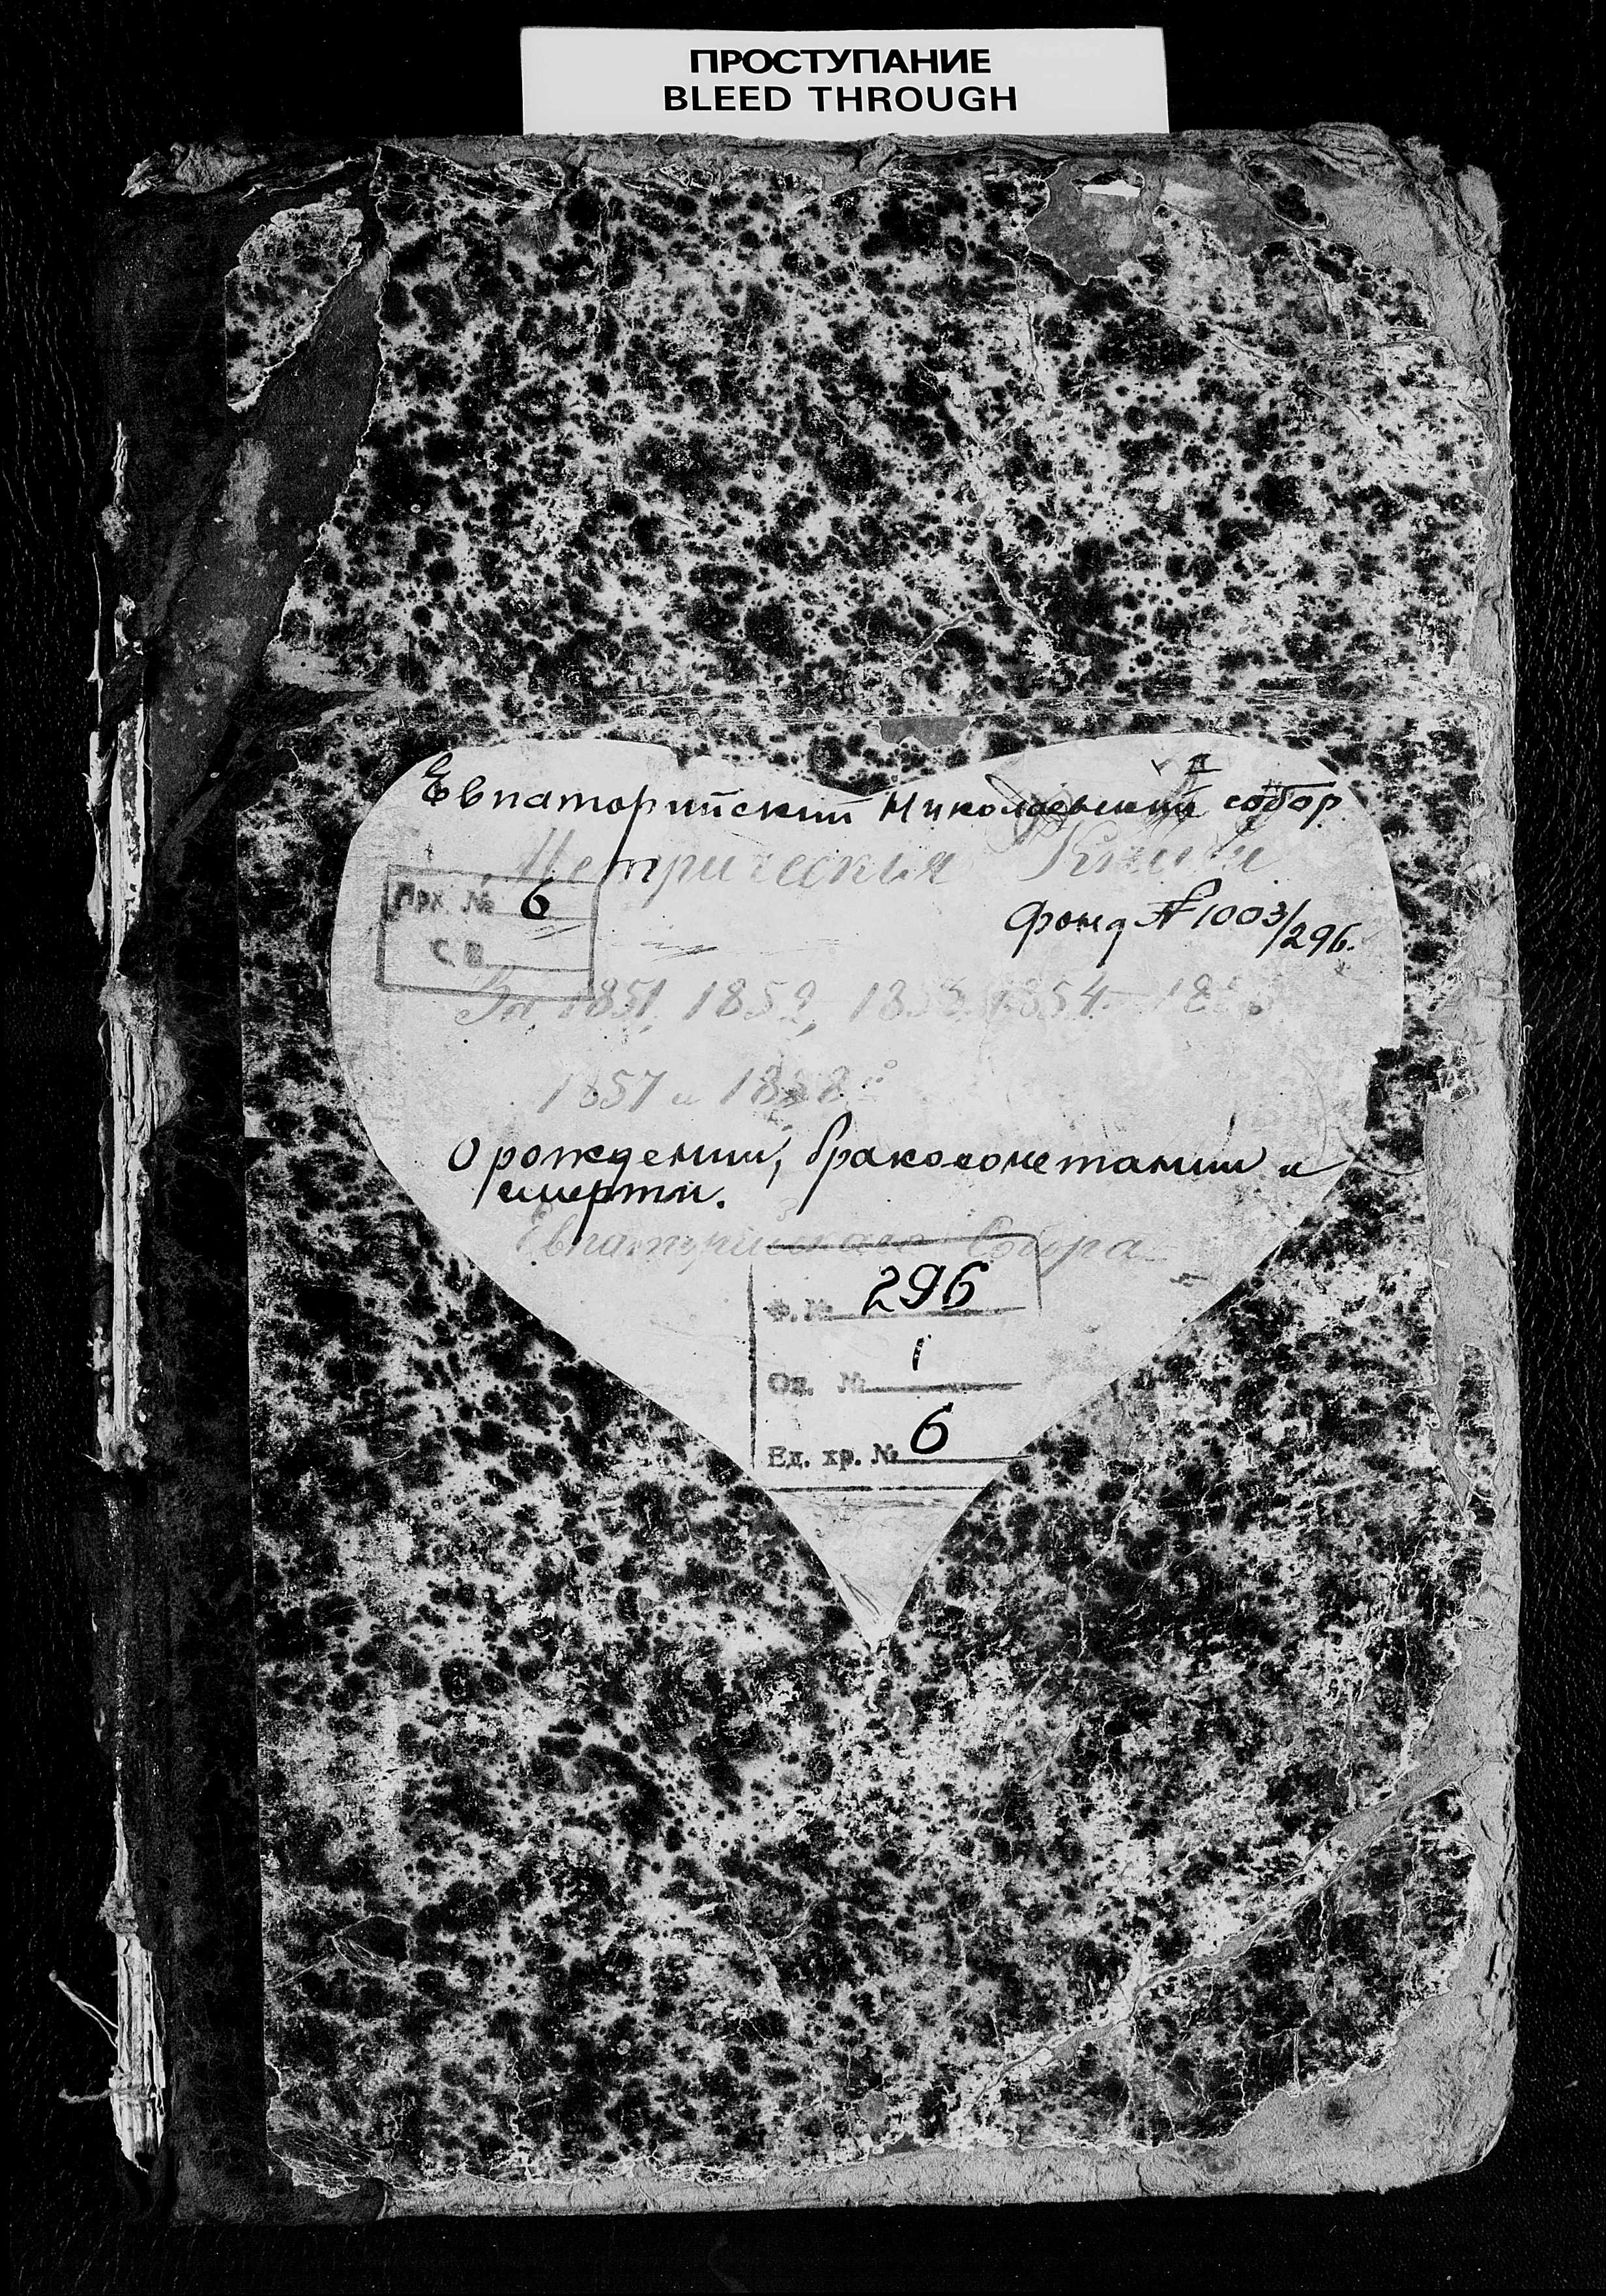 ПРОСТУПАНИЕ
BLEED THROUGH
II
Евпаторийский Николаевский собор
Метрическия Книги
Арх. № 6
С.В.
Фонд № 1003/296.
За 1851, 1852, 1853, 1854
1857 и 1858
О рождении, бракосочетании и
смерти.
Евпаторийскаго Собора
Ф. № 296
Оп. № 1
Ед. хр. № 6